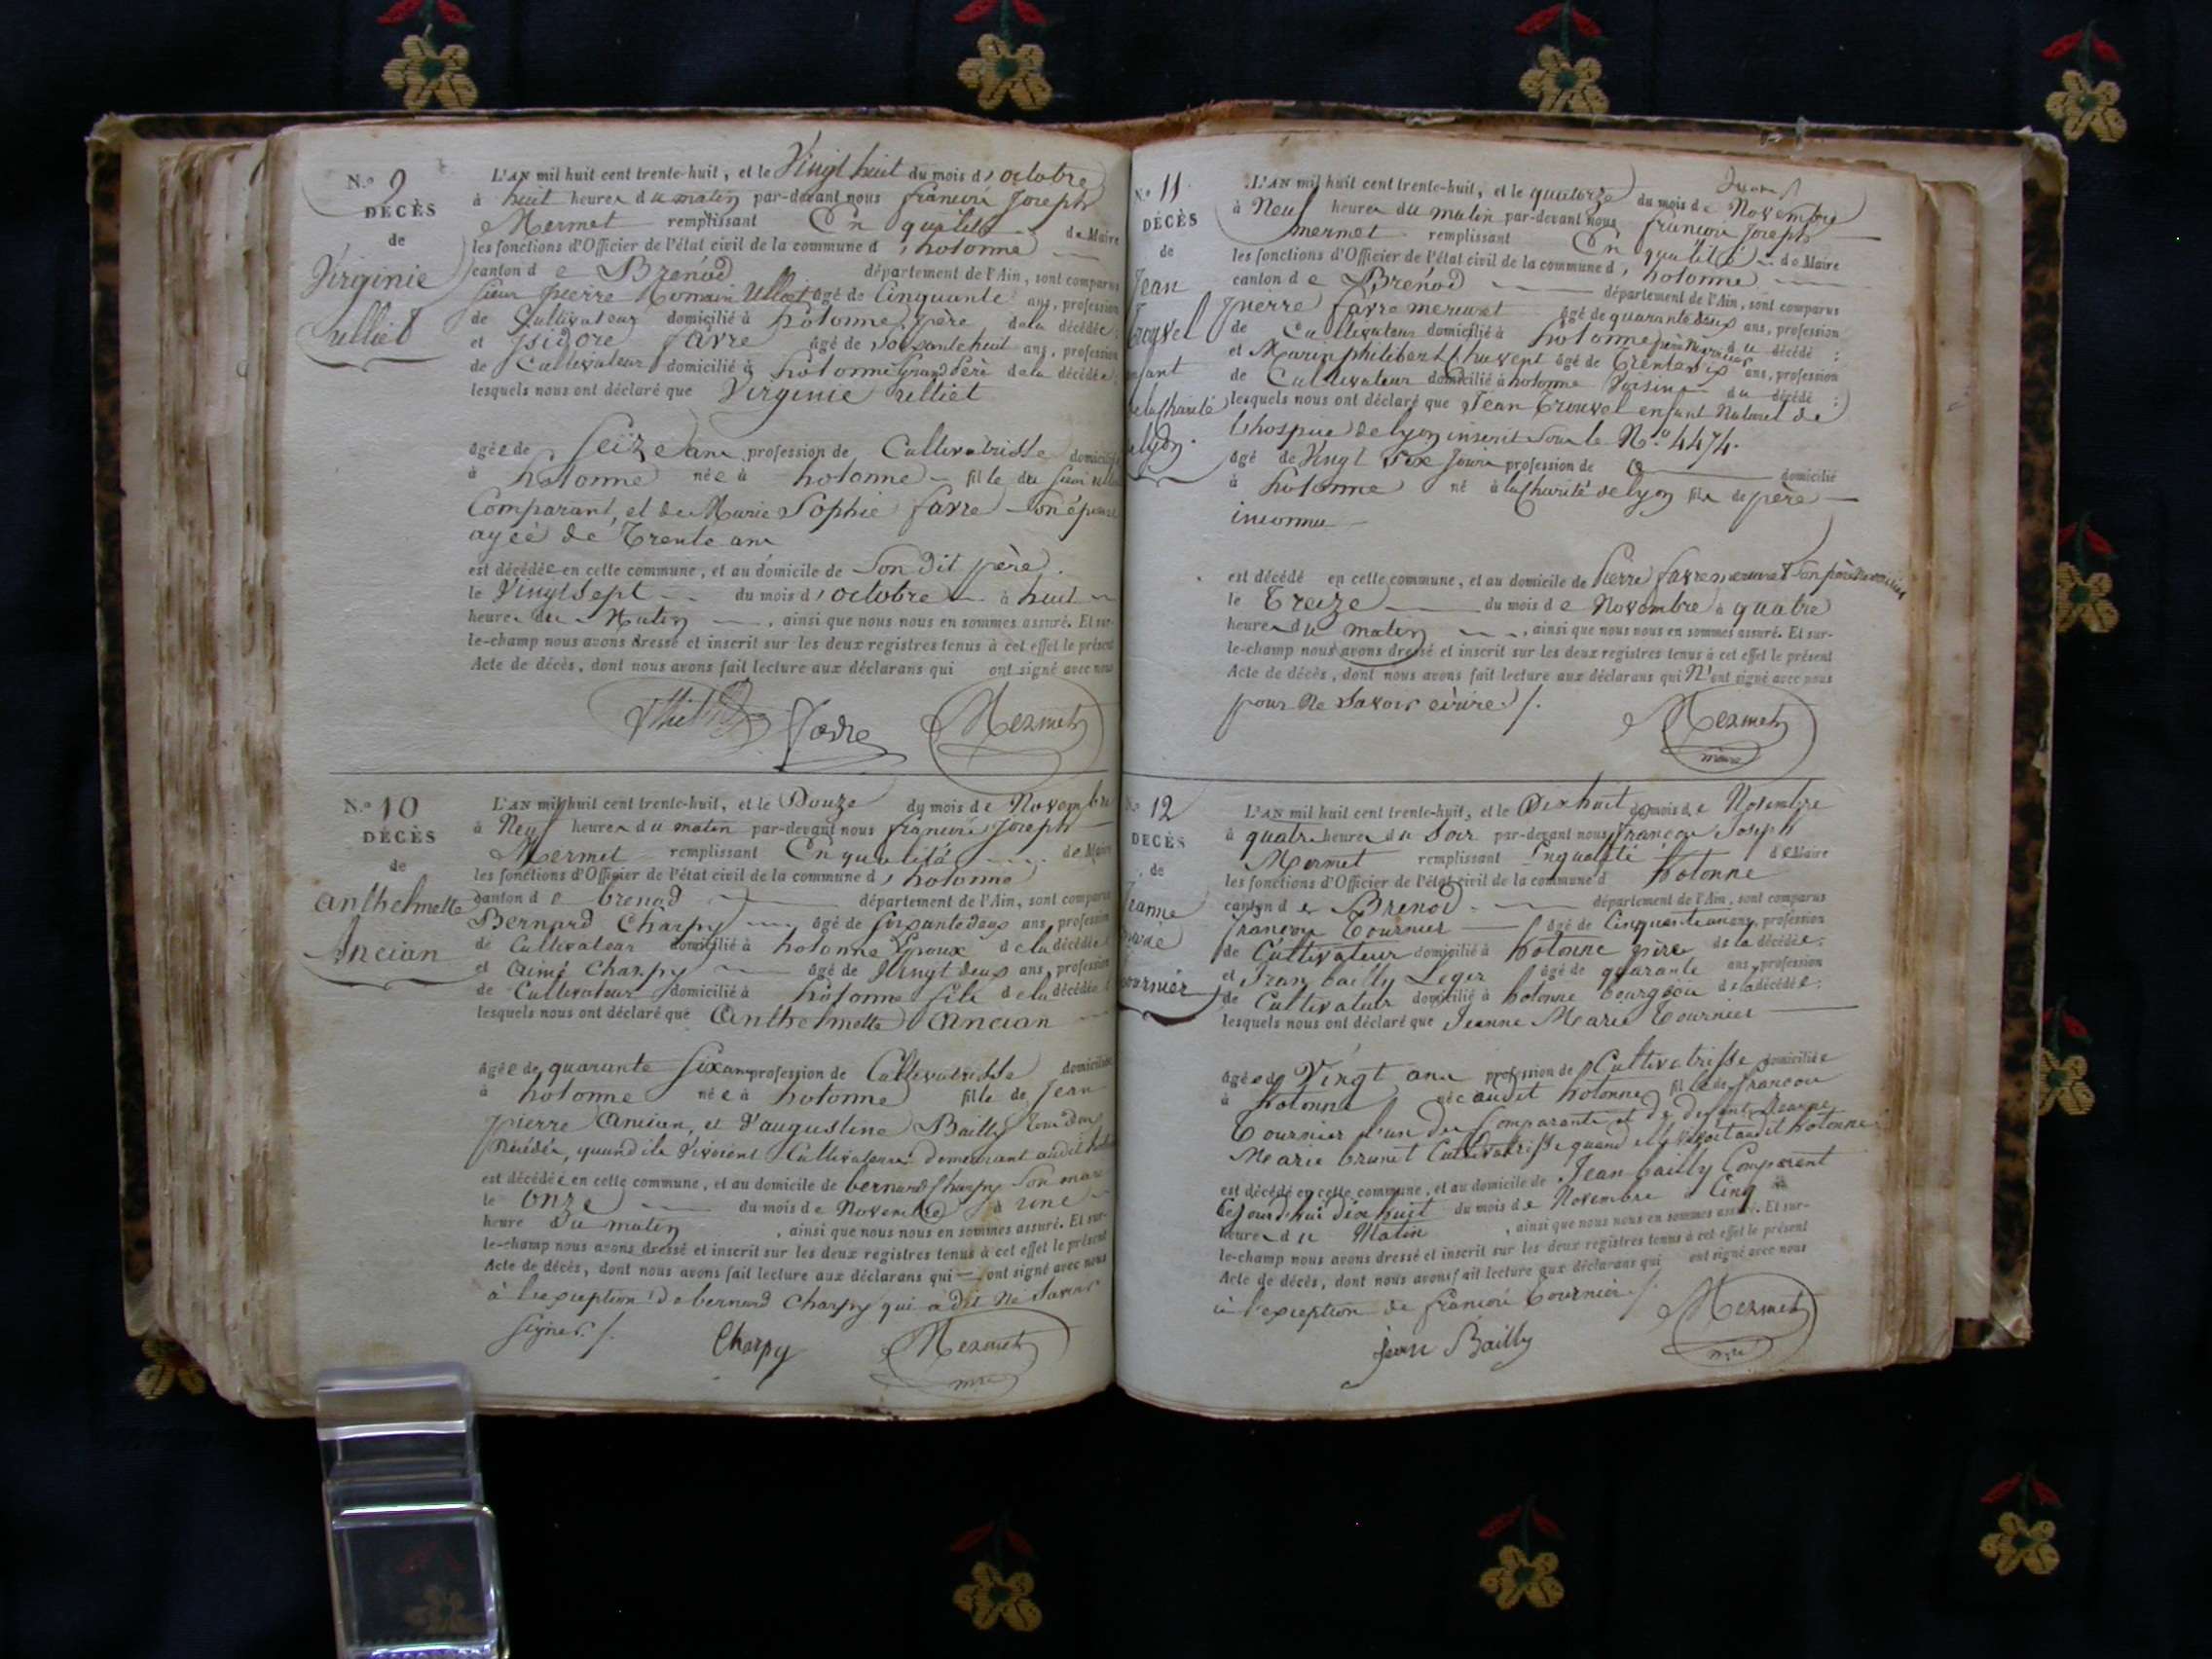 N.º 9
DÉCÈS
de
Virginie
ulliet
L'AN mil huit cent trente-huit, et le Vingt huit du mois d'octobre
à huit heures du matin par-devant nous françois Joseph
Mermet remplissant En qualité de Maire
les fonctions d'Officier de l'état civil de la commune d'hotonne
canton de Brenod département de l'Ain, sont comparus
sieur pierre Romain Ulliet âgé de Cinquante ans, profession
de Cultivateur domicilié à hotonne père de la décédée;
et Isidore favre âgé de soixante huit ans, profession
de Cultivateur domicilié à hotonne grand père de la décédée;
lesquels nous ont déclaré que Virginie ulliet
âgée de Seize ans profession de Cultivatrisse domiciliée
à hotonne née à hotonne fille du sieur
Comparant, et de Marie Sophie favre son épouse
agée de Trente ans
est décédée en cette commune, et au domicile de son dit père.
le Vingt sept du mois d'octobre à huit
heures du Matin, ainsi que nous nous en sommes assuré. Et sur-
le-champ nous avons dressé et inscrit sur les deux registres tenus à cet effet le présent
Acte de décès, dont nous avons fait lecture aux déclarans qui ont signé avec nous
favre Mermet
N.º 10
DÉCÈS
de
anthelmette
Ancian
L'AN mil huit cent trente-huit, et le Douze du mois de Novembre
à Neuf heures du matin par-devant nous françois Joseph
Mermet remplissant En qualité de Maire
les fonctions d'Officier de l'état civil de la commune d'hotonne
canton de brenod département de l'Ain, sont comparus
Bernard Charpy âgé de soixante deux ans, profession
de Cultivateur domicilié à hotonne Epoux de la décédée
et aimé Charpy âgé de Vingt deux ans, profession
de Cultivateur domicilié à hotonne fils de la décédée
lesquels nous ont déclaré que Anthelmette Ancian
âgée de quarante six ans profession de Cultivatrisse domiciliée
à hotonne née à hotonne fille de Jean
pierre Ancian, et d'augustine Bailly tous deux
Décédés, quand ils Vivoient Cultivateurs demeurant audit
est décédée en cette commune, et au domicile de bernard Charpy son mari
le Onze du mois de Novembre à une
heure du matin, ainsi que nous nous en sommes assuré. Et sur-
le-champ nous avons dressé et inscrit sur les deux registres tenus à cet effet le présent
Acte de décès, dont nous avons fait lecture aux déclarans qui ont signé avec nous
à l'exception de bernard Charpy qui a dit ne Savoir
signer ./.
Charpy Mermet
N.º 11
DÉCÈS
de
Jean
L'AN mil huit cent trente-huit, et le quatorze du mois de Novembre
à Neuf heures du matin par-devant nous françois Joseph
mermet remplissant En qualité de Maire
les fonctions d'Officier de l'état civil de la commune d'hotonne
canton de Brenod département de l'Ain, sont comparus
pierre favre mercuret âgé de quarante deux ans, profession
de Cultivateur domicilié à hotonne père Nourricier du décédé;
et Marin philibert Chavent âgé de Trente six ans, profession
de Cultivateur domicilié à hotonne Voisin du décédé;
lesquels nous ont déclaré que Jean Trouvel enfant Naturel de
l'hospice de lyon inscrit sous le N.º 4474.
âgé de Vingt Six Jours profession de domicilié
à hotonne né à la Charité de lyon fils de père
inconnu
est décédé en cette commune, et au domicile de Pierre favre mercuret son père Nourricier
le Treize du mois de Novembre à quatre
heures du matin, ainsi que nous nous en sommes assuré. Et sur-
le-champ nous avons dressé et inscrit sur les deux registres tenus à cet effet le présent
Acte de décès, dont nous avons fait lecture aux déclarans qui N'ont signé avec nous
pour Ne Savoir écrire ./.
Mermet
maire
N.º 12
DÉCÈS
de
L'AN mil huit cent trente-huit, et le Dix huit du mois de Novembre
à quatre heures du Soir par-devant nous françois Joseph
Mermet remplissant En qualité de Maire
les fonctions d'Officier de l'état civil de la commune d hotonne
canton de Brenod département de l'Ain, sont comparus
françois Tournier âgé de Cinquante un ans, profession
de Cultivateur domicilié à hotonne père de la décédée;
et Jean bailly Leger âgé de quarante ans, profession
de Cultivateur domicilié à hotonne bourgeois de la décédée;
lesquels nous ont déclaré que Jeanne Marie Tournier
âgée de Vingt ans profession de Cultivatrisse domiciliée
à hotonne née audit hotonne fille de françois
Tournier l'un des Comparants et de defunte Jeanne
Marie brunet Cultivatrisse quand elle vivoit audit hotonne
est décédé en cette commune, et au domicile de Jean bailly Comparant
Cejourdhui dix huit du mois de Novembre à Cinq
heures du Matin, ainsi que nous nous en sommes assuré. Et sur-
le-champ nous avons dressé et inscrit sur les deux registres tenus à cet effet le présent
Acte de décès, dont nous avons fait lecture aux déclarans qui ont signé avec nous
à l'exception de françois Tournier ./.
jean Bailly Mermet